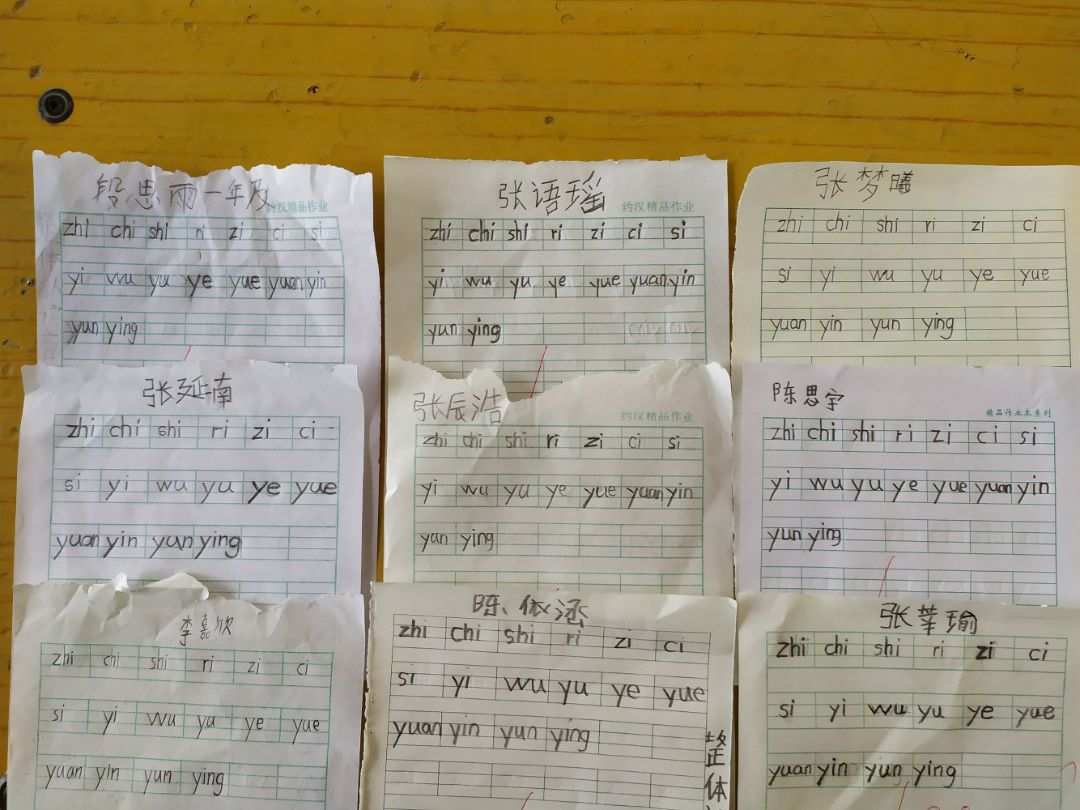 段思雨一年及
约汉精品作业
zhi chi shi ri zi ci si
yi wu yu ye yue yuan yin
yun ying
张语瑶
约汉精品作业
zhi chi shi ri zi ci si
yi wu yu ye yue yuan yin
yun ying
张梦曦
zhi chi shi ri zi ci
si yi wu yu ye yue
yuan yin yun ying
张延南
zhi chi shi ri zi ci
si yi wu yu ye yue
yuan yin yun ying
张辰浩
约汉精品作业
zhi chi shi ri zi ci si
yi wu yu ye yue yuan yin
yan ying
陈思宇
精品作业本系列
zhi chi shi ri zi ci si
yi wu yu ye yue yuan yin
yun ying
李嘉欣
zhi chi shi ri zi ci
si yi wu yu ye yue
yuan yin yun ying
陈依涵
zhi chi shi ri zi ci
si yi wu yu ye yue
yuan yin yun ying
整体
张莘瑜
zhi chi shi ri zi ci
si yi wu yu ye yue
yuan yin yun ying